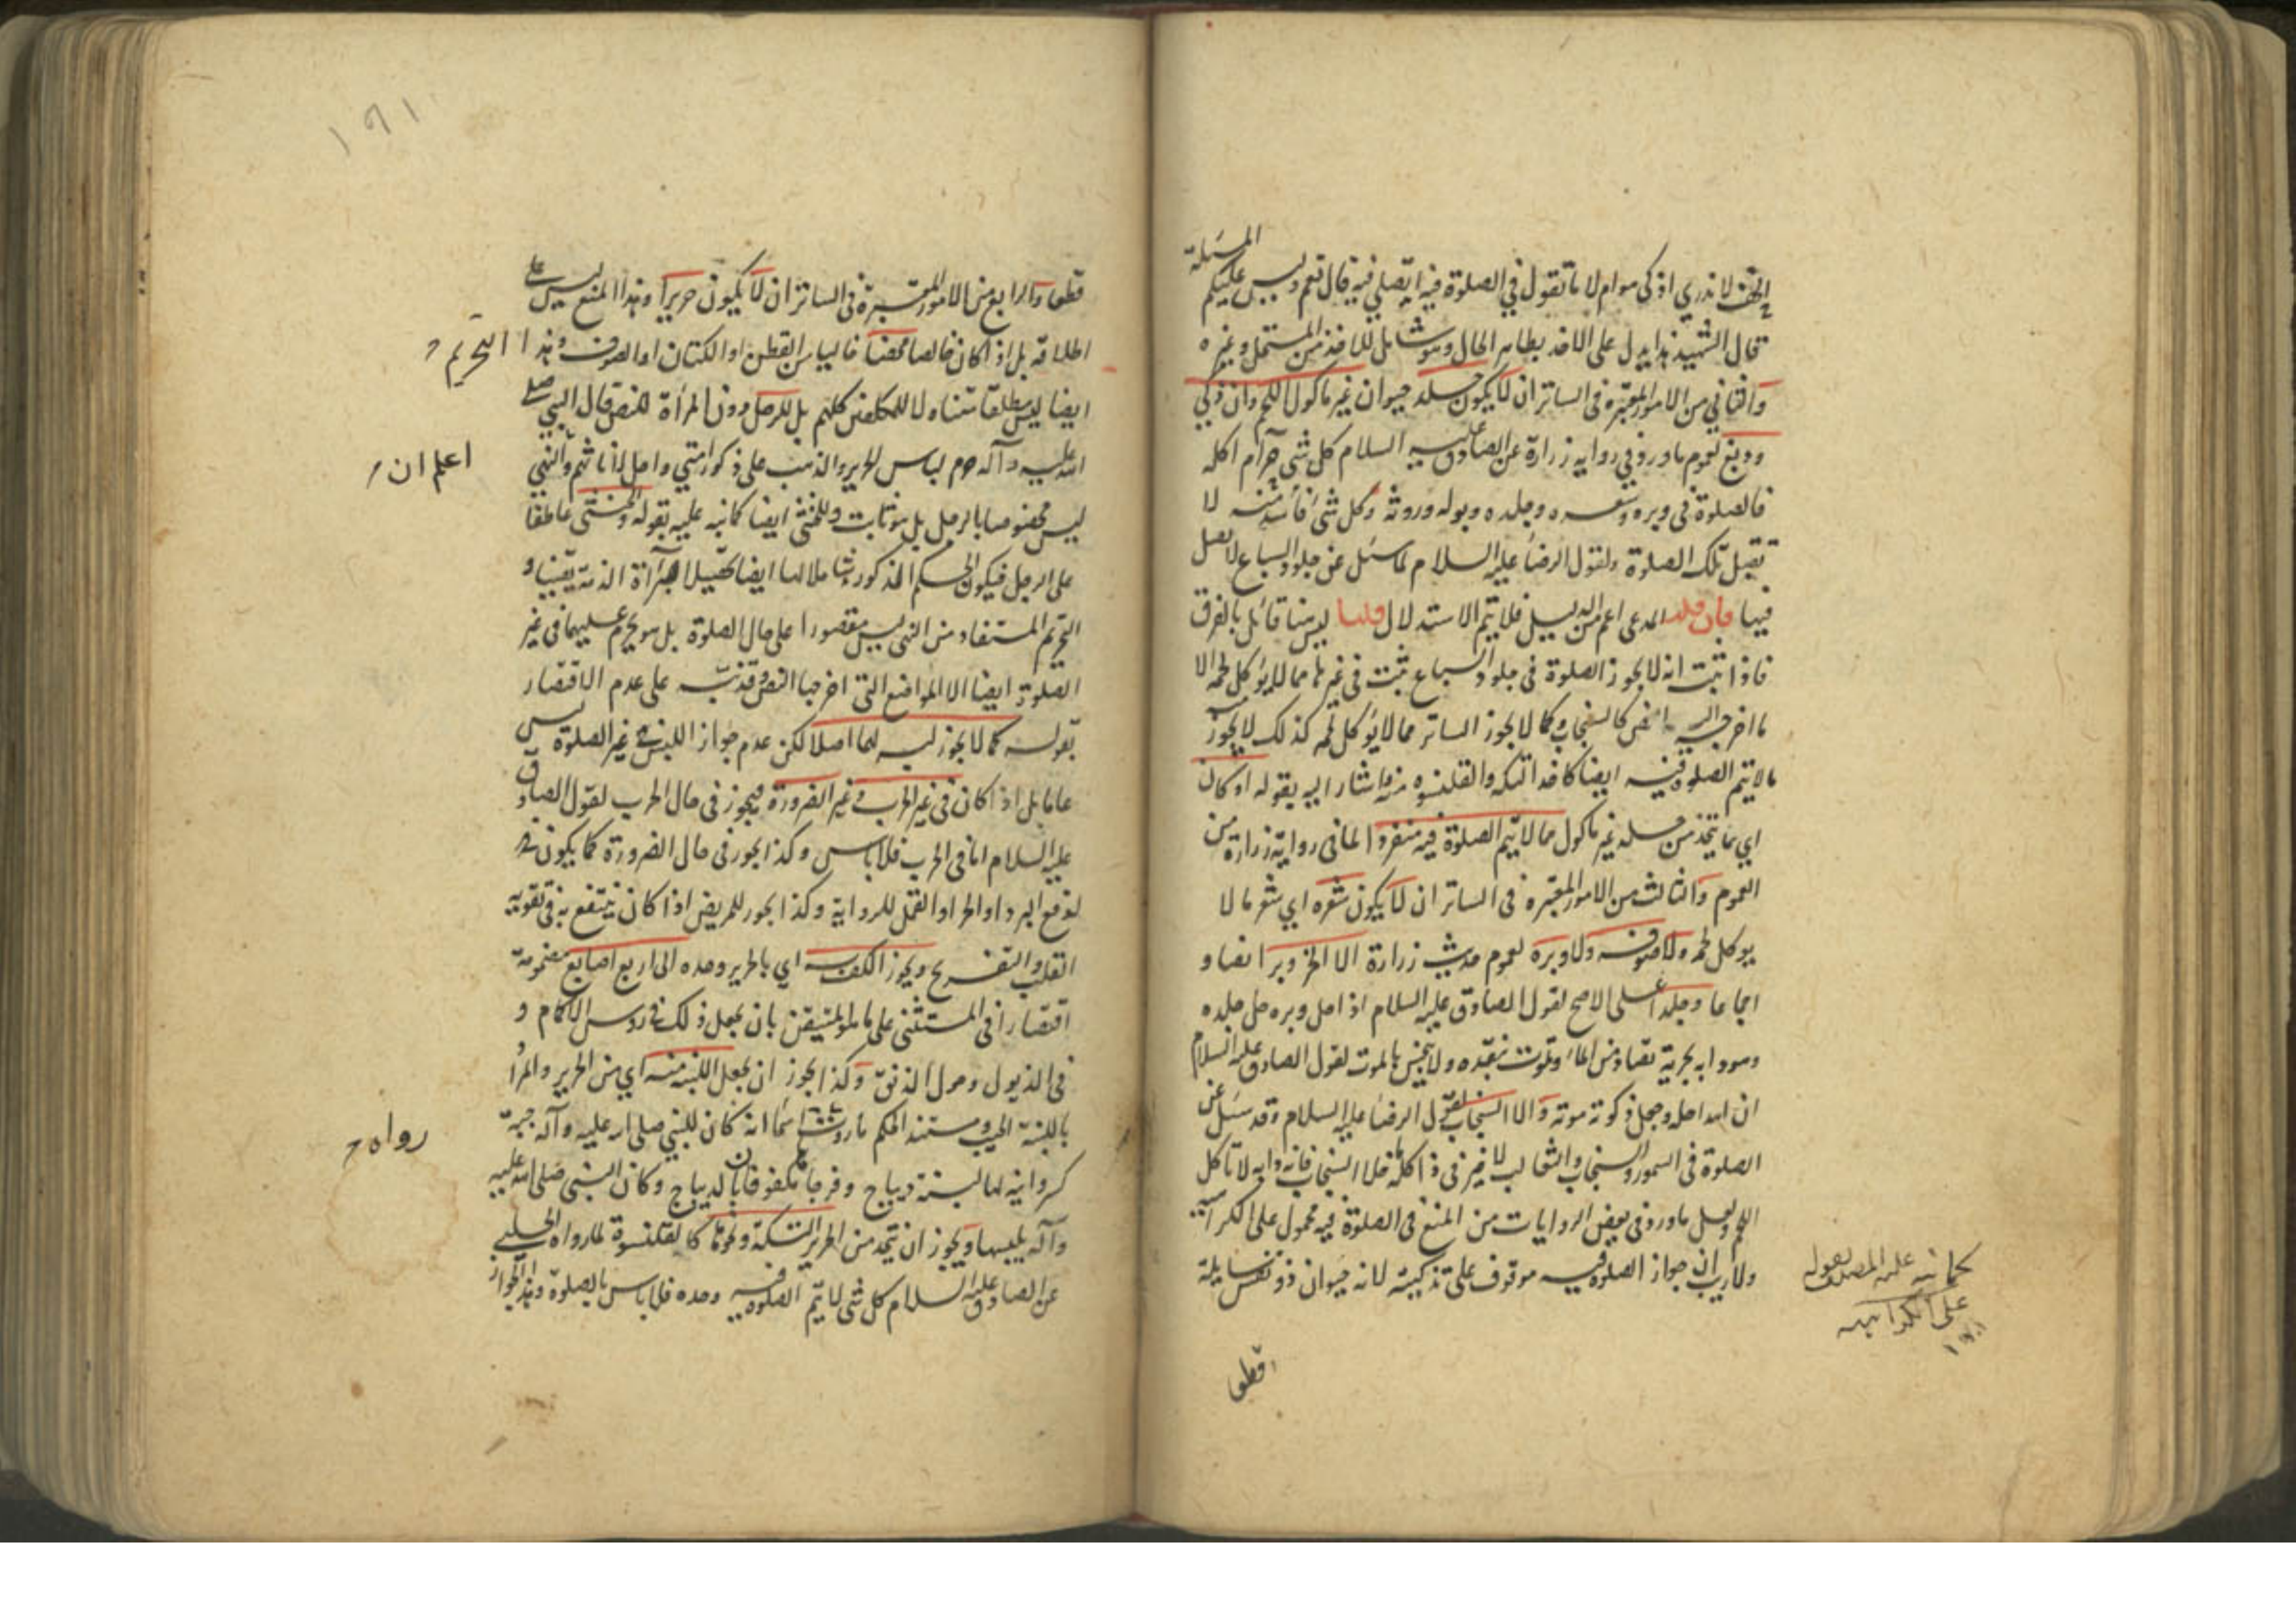 المسئلة
الخف لا ندري اذكي هو ام لا ما تقول في الصلوة فيه ايصلي فيه قال نعم وليس عليكم
قال الشهيد هذا يدل على الاخذ بظاهر الحال وهو شامل للاخذ من المستحل وغيره
والثاني من الامور المعتبرة في الساتر ان لا يكون جلد حيوان غير ماكول اللحم وان ذكي
ودبغ لعموم ما ورد في رواية زرارة عن الصادق عليه السلام كل شي حرام اكله
فالصلوة في وبره وشعره وجلده وبوله وروثه وكل شي فاسد منه لا
تقبل تلك الصلوة ولقول الرضا عليه السلام لما سئل عن جلود السباع لا تصل
فيها فان قلت المدعى اعم من الدليل فلا يتم الاستدلال قلنا ليس هنا قائل بالفرق
فاذا ثبت انه لا يجوز الصلوة في جلود السباع ثبت في غيرها مما لا يؤكل لحمه الا
ما اخرجه النص كالسنجاب وكما لا يجوز الساتر مما لا يؤكل لحمه كذلك لا يجوز
ما لا يتم الصلوة فيه ايضا كاخذ التكة والقلنسوة منه اشار اليه بقوله او كان
اي ما يتخذ من جلد غير ماكول مما لا يتم الصلوة فيه منفردا لما في رواية زرارة من
العموم والثالث من الامور المعتبرة في الساتر ان لا يكون شعره اي شعر ما لا
يوكل لحمه ولا صوفه ولا وبره لعموم حديث زرارة الا الخز وبرا نصا و
اجماعا وجلدا على الاصح لقول الصادق عليه السلام اذا حل وبره حل جلده
وهو دابة بحرية تصاد من الماء وتموت بفقده ولا ينجس بالموت لقول الصادق عليه السلام
ان الله احله وجعل ذكوته موته والا السنجاب لقول الرضا عليه السلام وقد سئل عن
الصلوة في السمور والسنجاب والثعالب لا خير في ذا كله ما خلا السنجاب فانه دابة لا تاكل
اللحم ولعل ما ورد في بعض الروايات من المنع في الصلوة فيه محمول على الكراهية
ولا ريب ان جواز الصلوة فيه موقوف على تذكيته لانه حيوان ذو نفس سايلة
كما نبه عليه المصنف بقوله
على الكراهية
قطعا
١٩١
قطعا والرابع من الامور المعتبرة في الساتر ان لا يكون حريرا وهذا المنع ليس على
اطلاقه بل اذا كان خالصا محضا فالباس القطن او الكتان او الصوف وهذا التحريم
ايضا ليس مطلقا متناولا للمكلفين كلهم بل للرجل دون المرأة للنص قال النبي صلى
الله عليه وآله حرم لباس الحرير والذهب على ذكور امتي واحل لاناثهم والنهي
اعلم ان
ليس مخصوصا بالرجل بل هو ثابت وللخنثى ايضا كما نبه عليه بقوله والخنثى عاطفا
على الرجل فيكون الحكم المذكور شاملا لها ايضا تحصيلا لبرآءة الذمة يقينا و
التحريم المستفاد من النهي ليس مقصورا على حال الصلوة بل هو يحرم عليهما في غير
الصلوة ايضا الا المواضع التي اخرجها النص وقد نبه على عدم الاقتصار
بقوله كما لا يجوز لبسه لهما اصلا لكن عدم جواز اللبس في غير الصلوة ليس
عاما بل اذا كان في غير الحرب وغير الضرورة فيجوز في حال الحرب لقول الصادق
عليه السلام اما في الحرب فلا باس وكذا يجوز في حال الضرورة كما يكون
لدفع البرد او الحر او القمل للرواية وكذا يجوز للمريض اذا كان ينتفع به في تقوية
القلب والتفريح ويجوز الكف به اي بالحرير وحده الى اربع اصابع مضمومة
اقتصارا في المستثنى على ما هو المتيقن بان يجعل ذلك في روس الاكمام و
في الذيول وحول الذقن وكذا يجوز ان يجعل اللبنة منه اي من الحرير والمراد
باللبنة الجيب ومستند الحكم ما روته اسما انه كان للنبي صلى الله عليه وآله جبة
رواه
كسروانية لها لبنة ديباج وفرجاها مكفوفان بالديباج وكان النبي صلى الله عليه
وآله يلبسها ويجوز ان يتخذ من الحرير التكة ونحوها كالقلنسوة لما رواه الحلبي
عن الصادق عليه السلام كل شي لا يتم الصلوة فيه وحده فلا باس بالصلوة وهذا الجواز